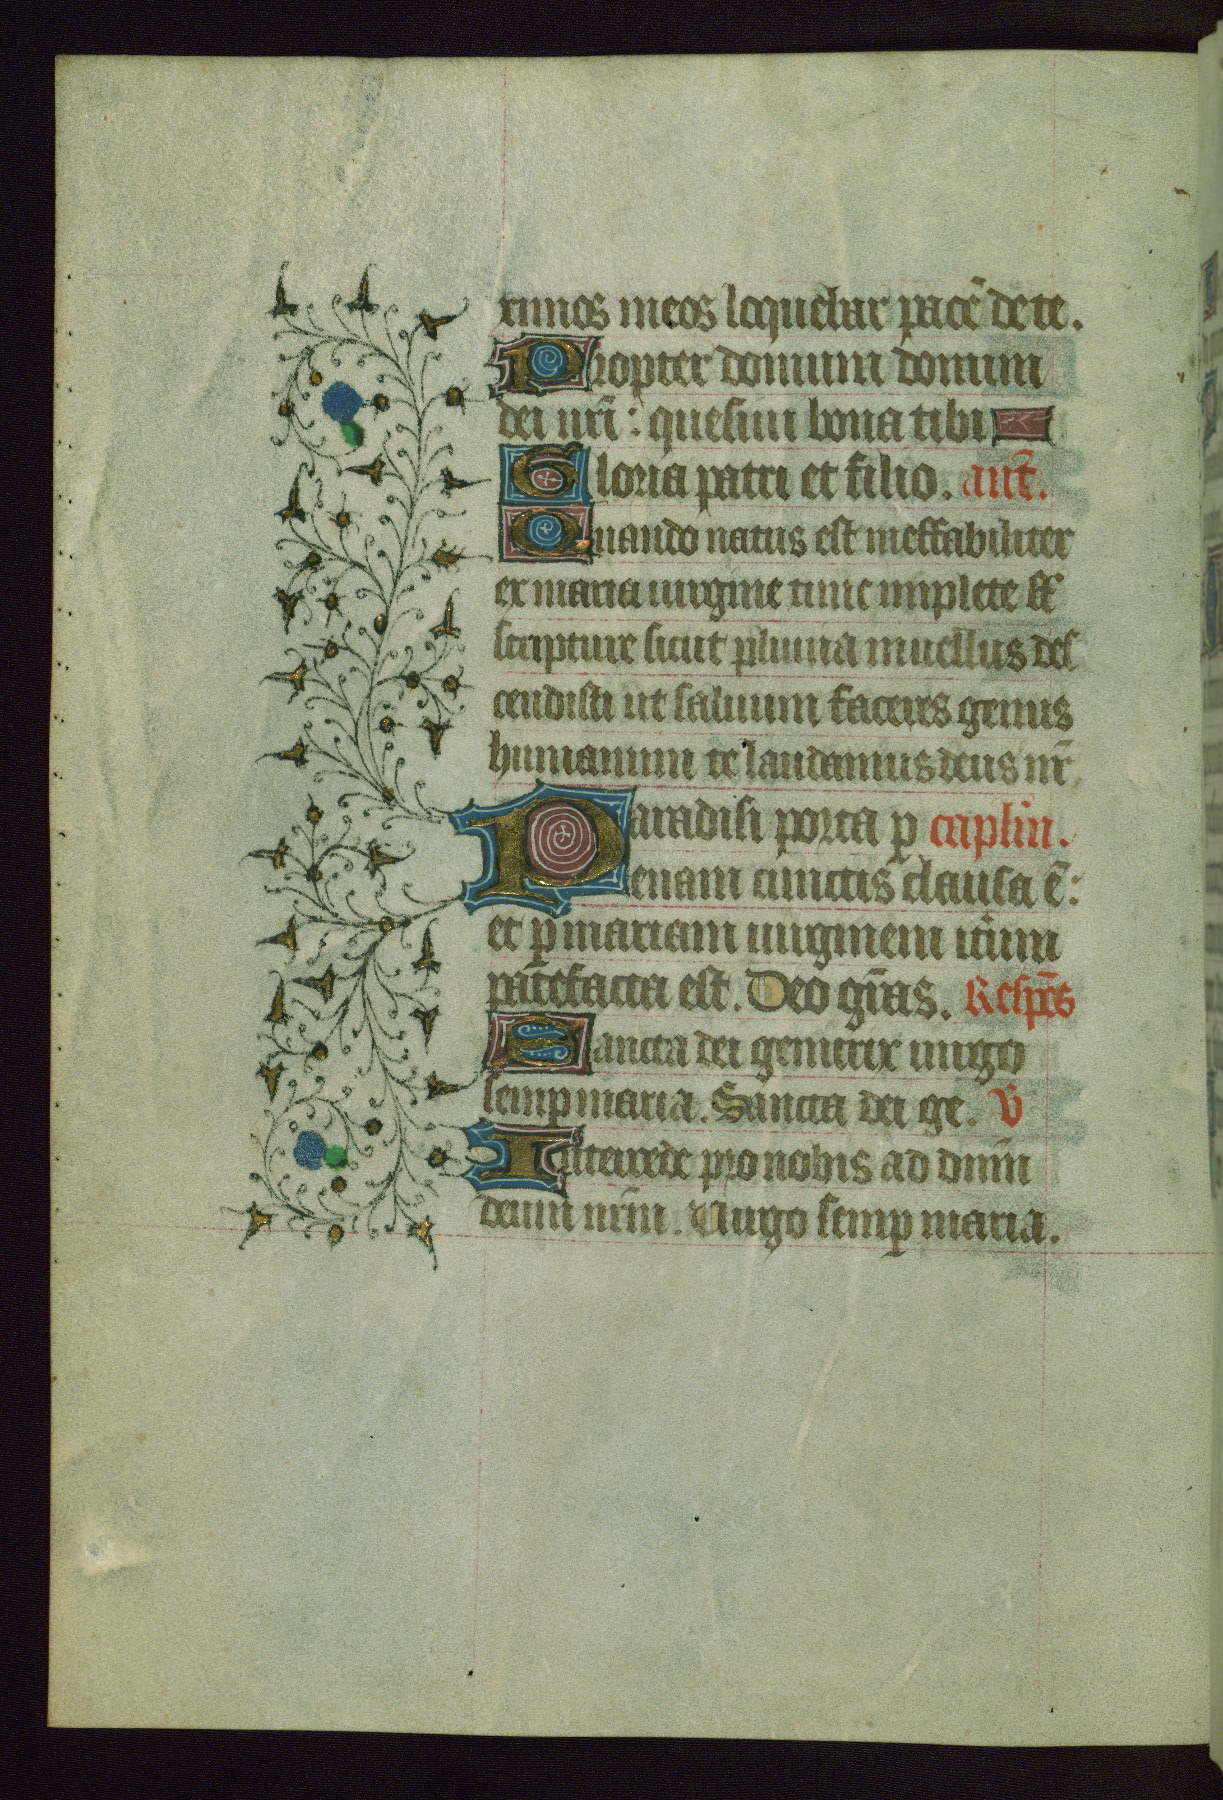 ximos meos loquebar pacē de te.
Propter domum domini
dei nrī : quesiui bona tibi
Gloria patri et filio. ant̄.
Quando natus est ineffabiliter
ex maria uirgine tunc implete st̄
scripture sicut pluuia in uellus des
cendisti ut saluum faceres genus
humanum te laudamus deus nr̄
Paradisi porta p caplm̄.
euam cunctis clausa ē :
et p mariam uirginem itm̄
patefacta est. Deo grās. Respōs
Sancta dei genitrix uirgo
semp maria. Sancta dei ge. v̄
Intercede pro nobis ad dnm̄
deum nrm̄. Uirgo semp maria.